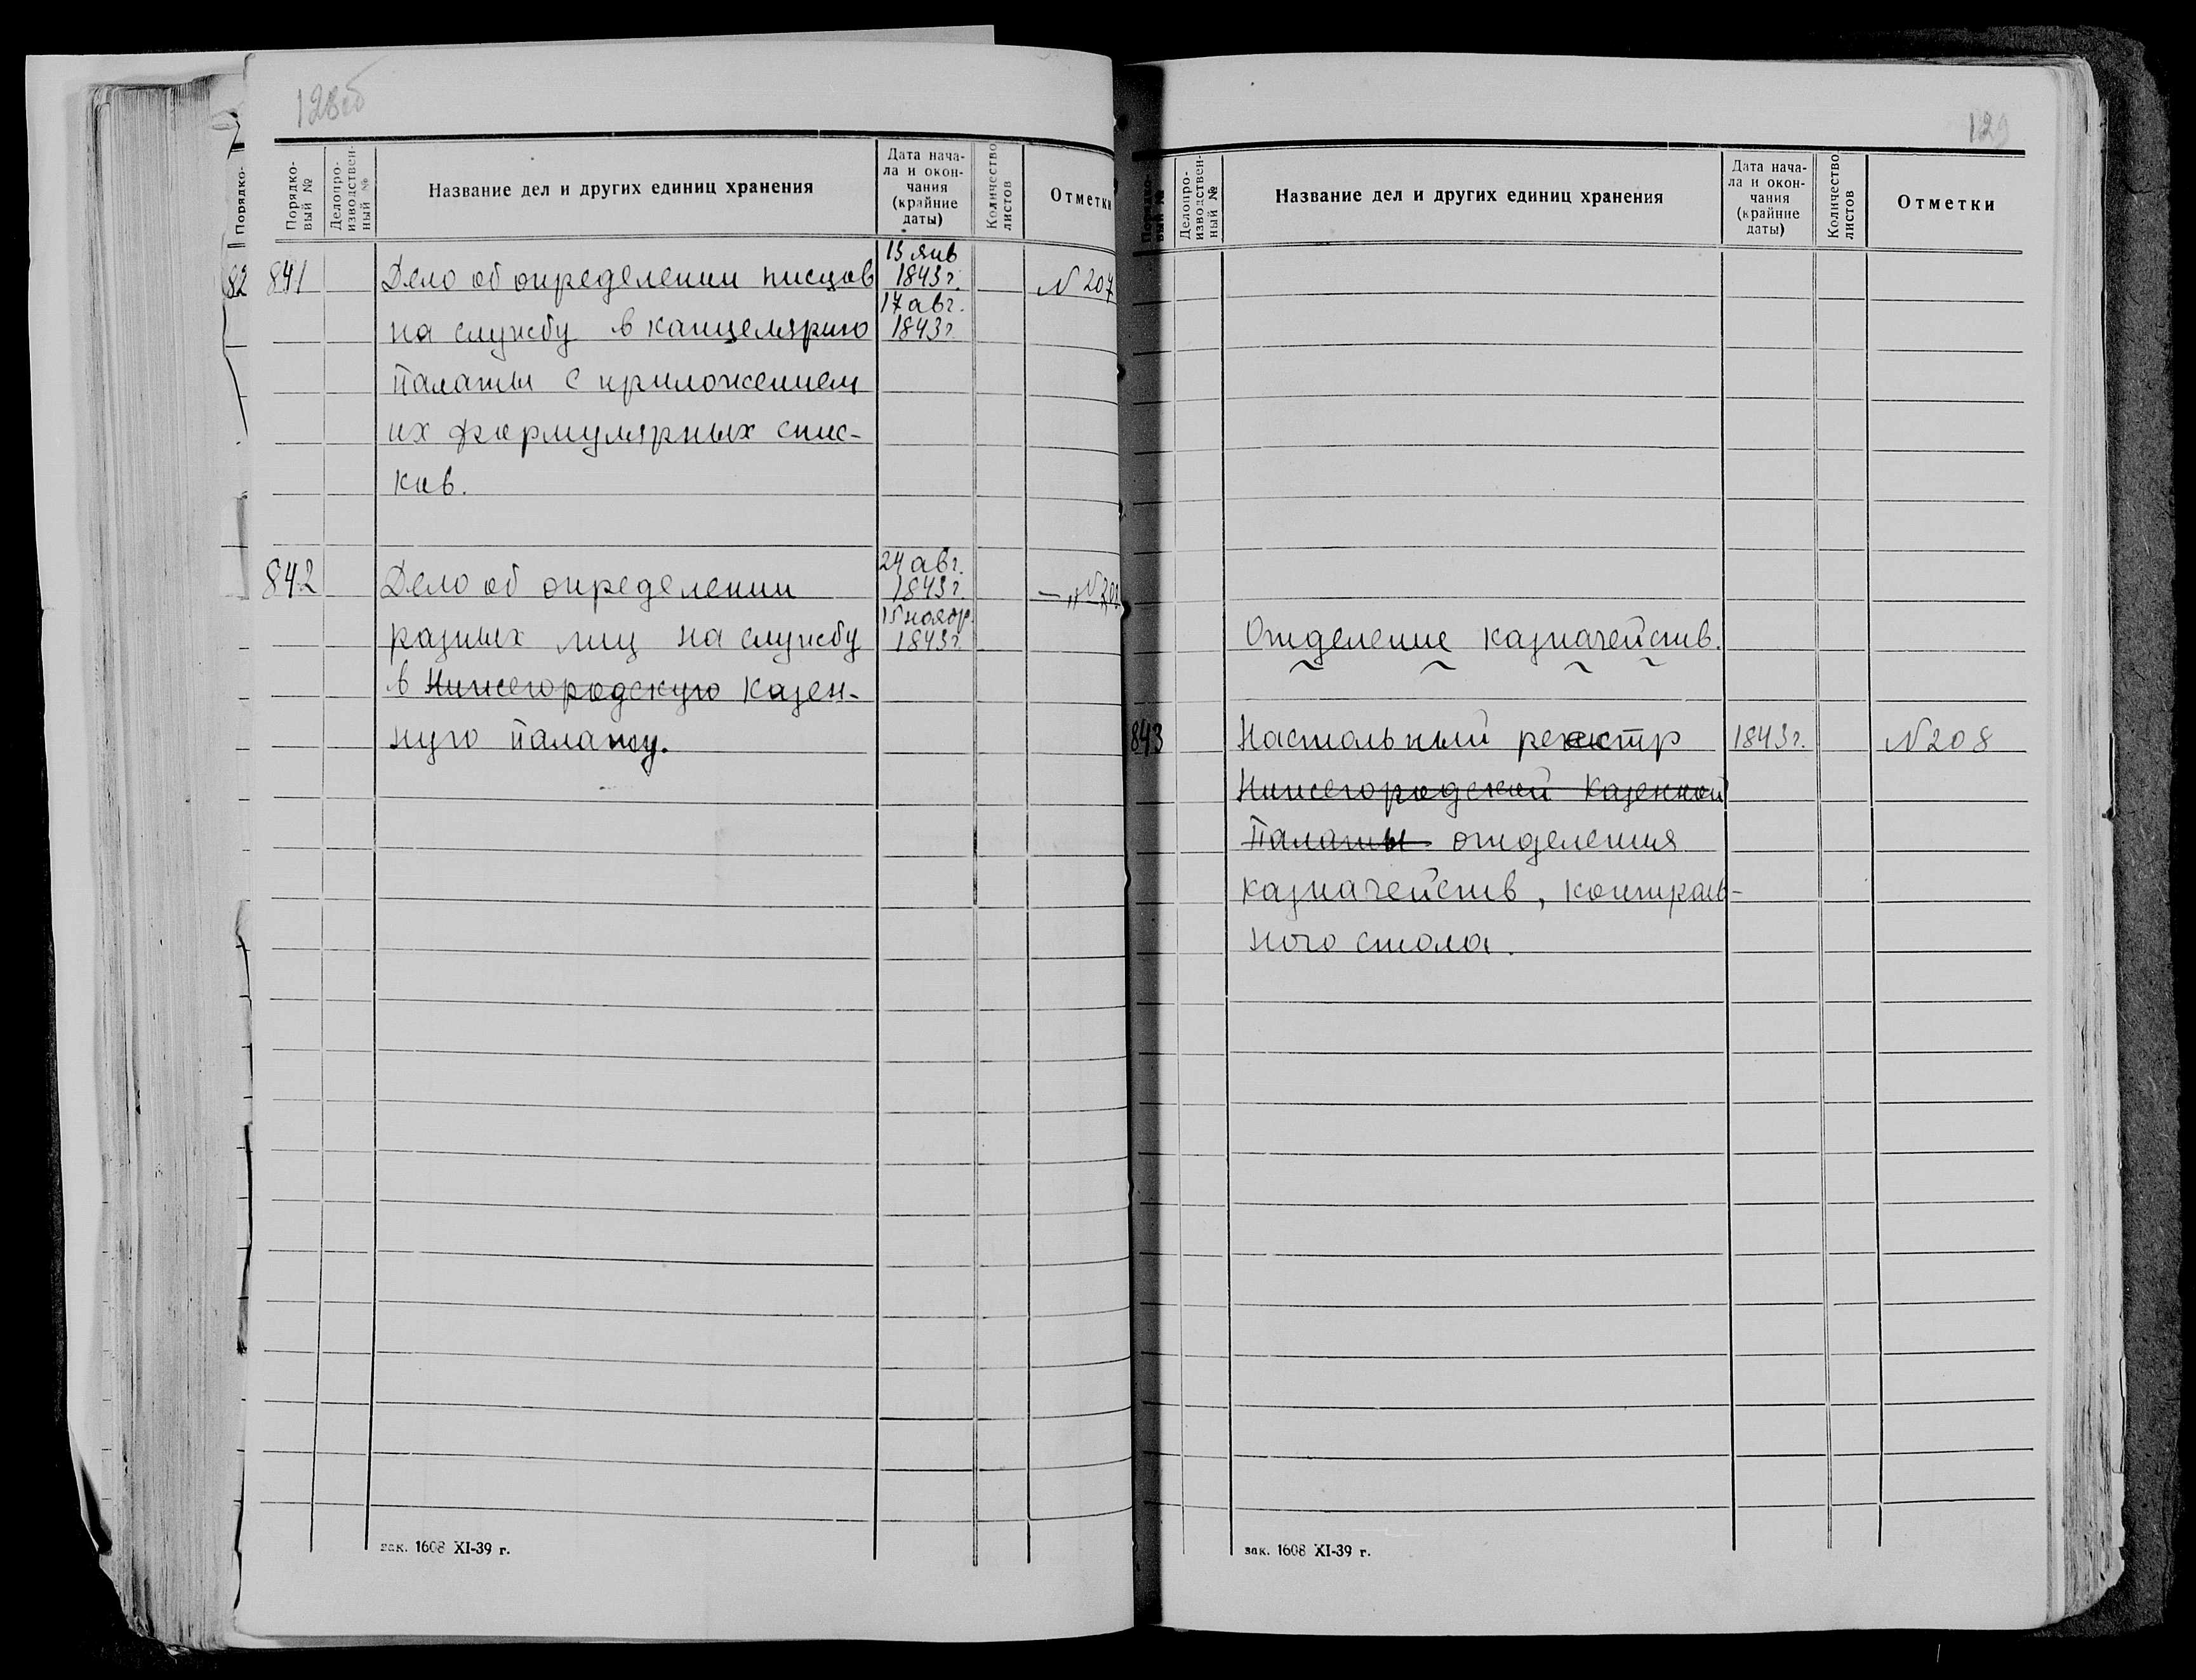 128об
Порядко-
Порядко-
вый №
Делопро-
изводствен-
ный №
Название дел и других единиц хранения
Дата нача-
ла и окон-
чания
(крайние
даты)
Количество
листов
Отметки
82 841 Дело об определении писцов 13 янв 1843 г. № 207
на службу в канцелярию 17 авг. 1843 г.
палаты с приложением
их формулярных спис-
ков.
842 Дело об определении 24 авг. 1843 г. — „
разных лиц на службу 15 ноябр. 1843 г.
в Нижегородскую казен-
ную палату.
зак. 1608 XI-39 г.
129
Порядко-
вый №
Делопро-
изводствен-
ный №
Название дел и других единиц хранения
Дата нача-
ла и окон-
чания
(крайние
даты)
Количество
листов
Отметки
Отделение казначейств.
843 Настольный реестр 1843 г. № 208
Нижегородской Казенной
Палаты отделения
казначейств, контроль-
ного стола.
зак. 1608 XI-39 г.